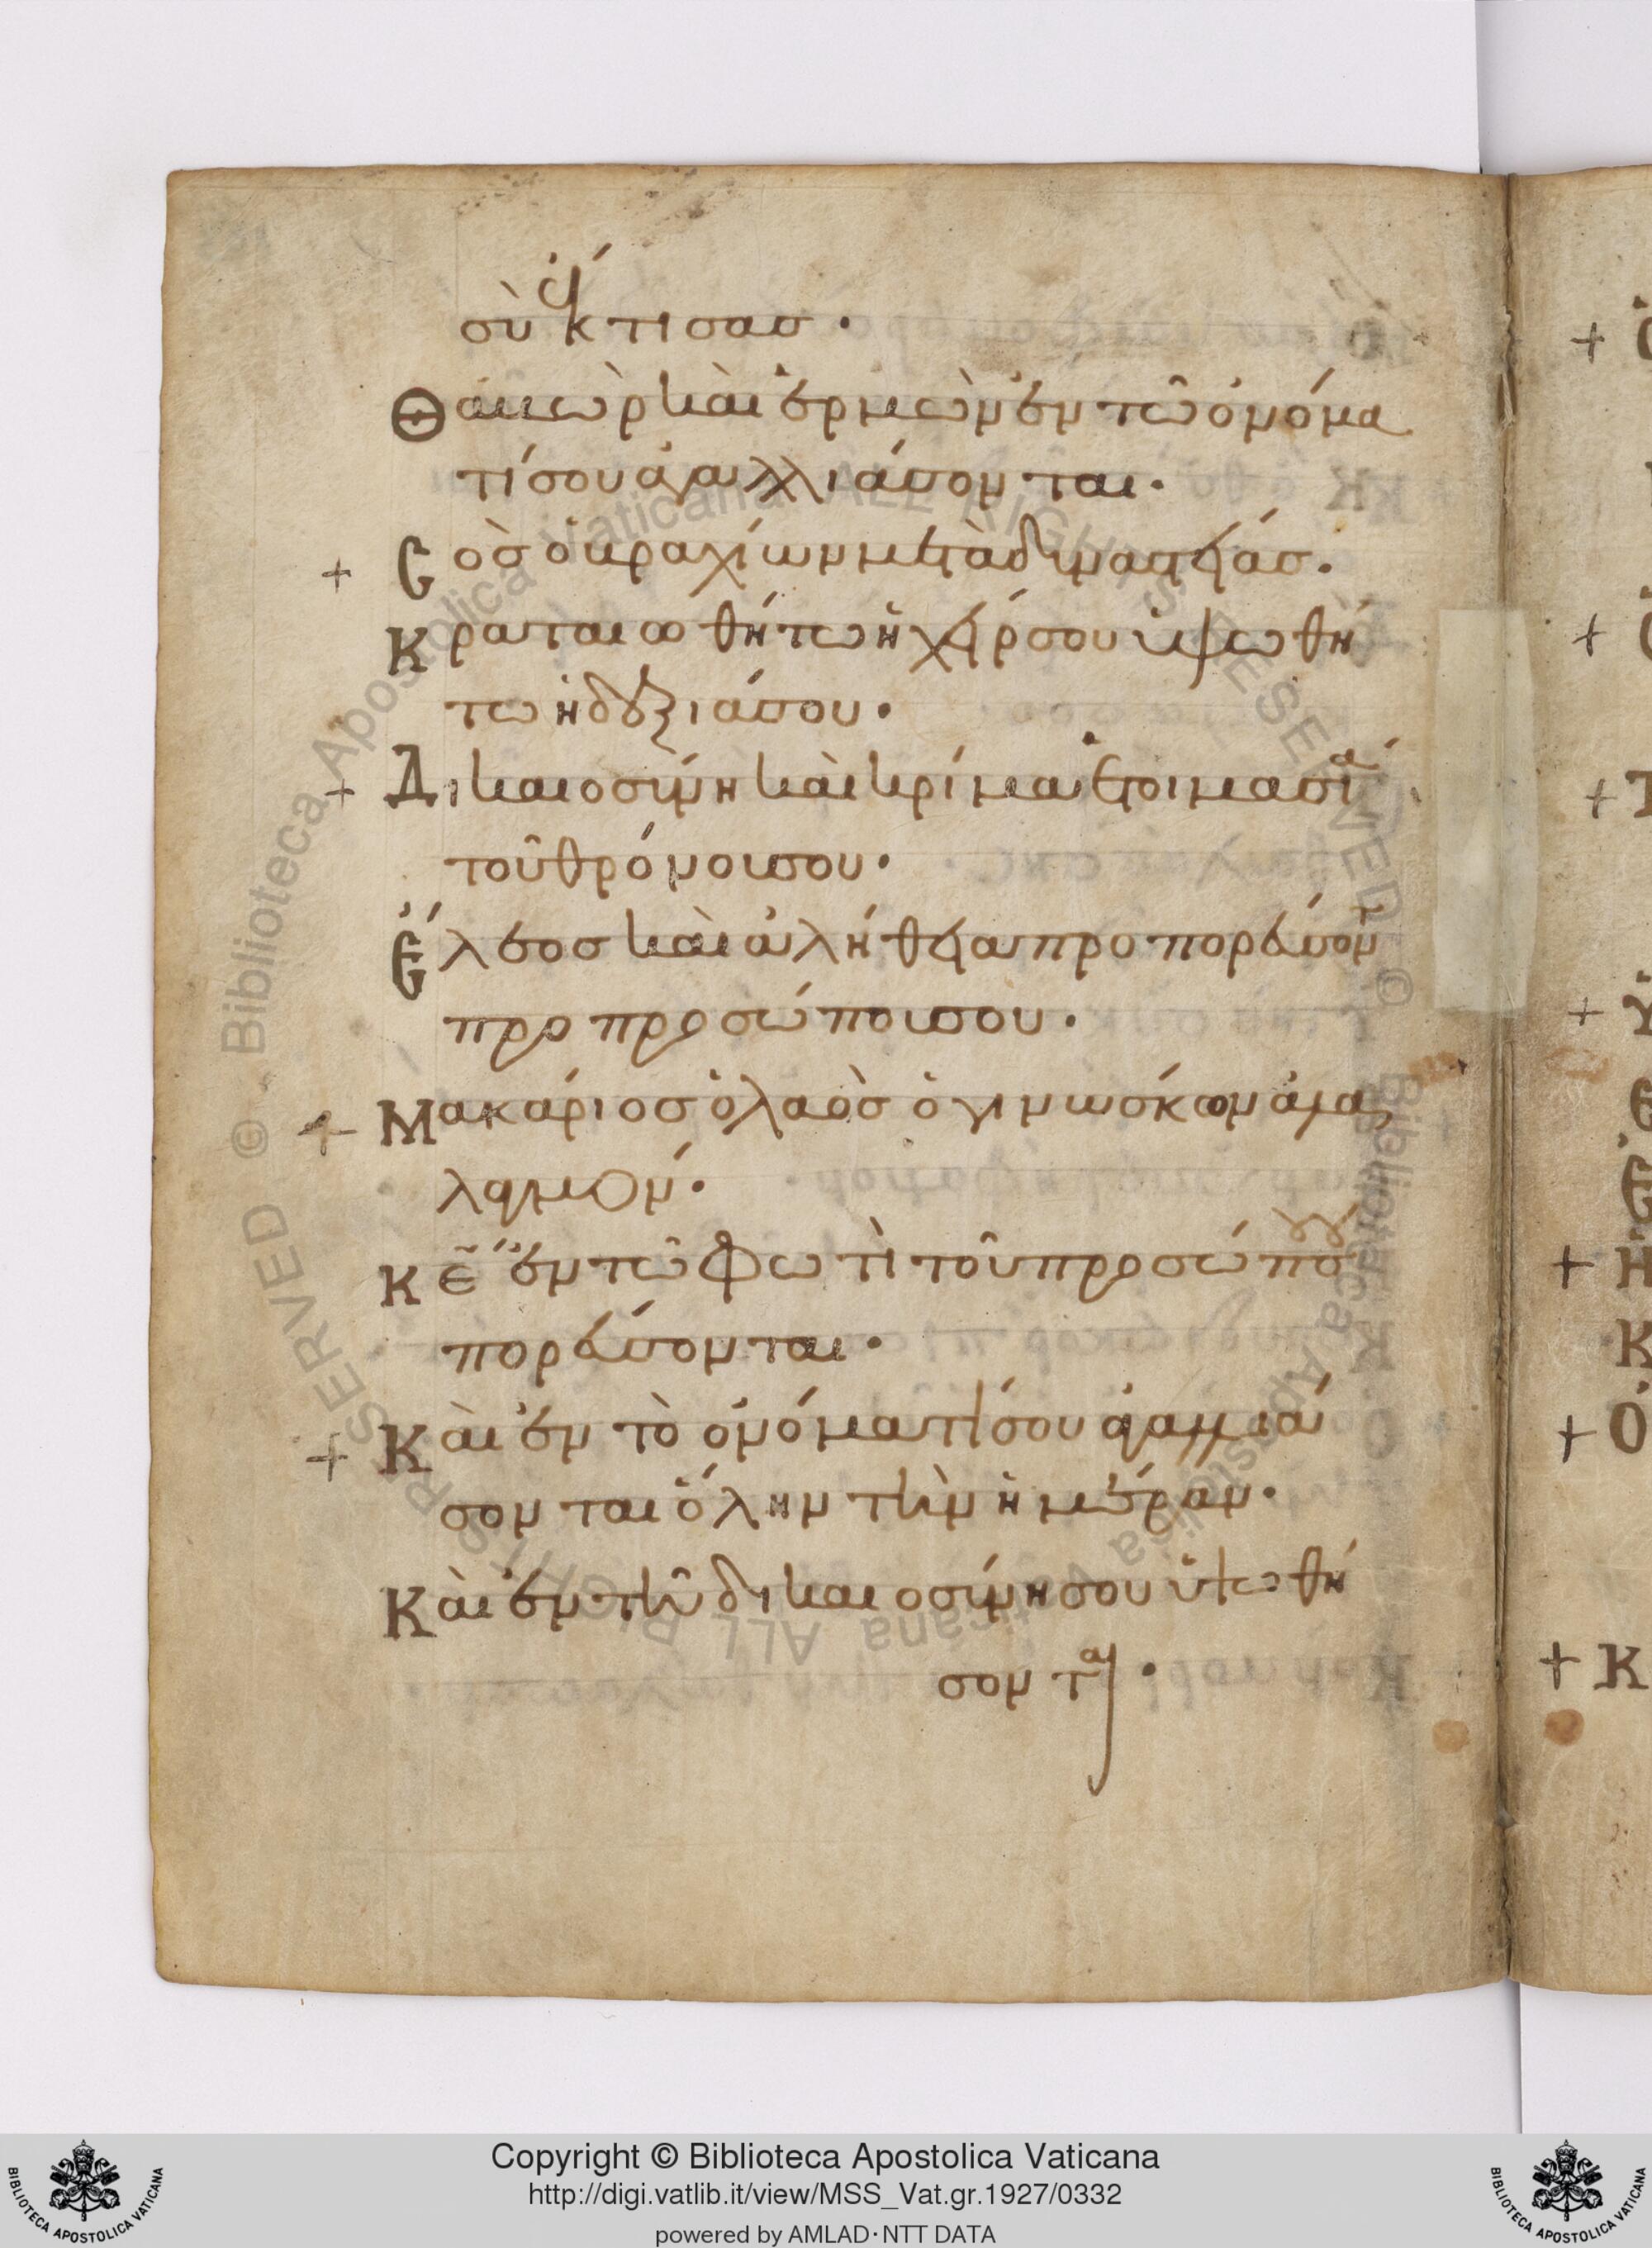 σὺ ἔκτισασ·
Θαβὼρ καὶ ἑρμὼν ἐν τῶ ὀνόμα
τί σου ἀγαλλιάσονται·
Σὸσ ὁ βραχίων μετὰ δυναστείασ·
Κραταιωθήτω ἡ χείρ σου ὑψωθή
τω ἡ δεξιά σου·
Δικαιοσύνη καὶ κρίμα ἑτοιμασία
τοῦ θρόνου σου·
Ἔλεοσ καὶ ἀλήθεια προπορεύσον
προ προσώπου σου·
Μακάριοσ ὁ λαὸσ ὁ γινώσκων ἀλα
λαγμόν·
Κε ἐν τῶ φωτὶ τοῦ προσώπου
πορεύσονται·
Καὶ ἐν τὸ ὀνόματί σου ἀγαλλιά
σονται ὅλην τὴν ἡμέραν·
Καὶ ἐν τῆ δικαιοσύνη σου ὑψωθή
σονται·
Biblioteca Apostolica Vaticana ALL RIGHTS RESERVED ©
Copyright © Biblioteca Apostolica Vaticana
http://digi.vatlib.it/view/MSS_Vat.gr.1927/0332
powered by AMLAD·NTT DATA
BIBLIOTECA APOSTOLICA VATICANA
BIBLIOTECA APOSTOLICA VATICANA